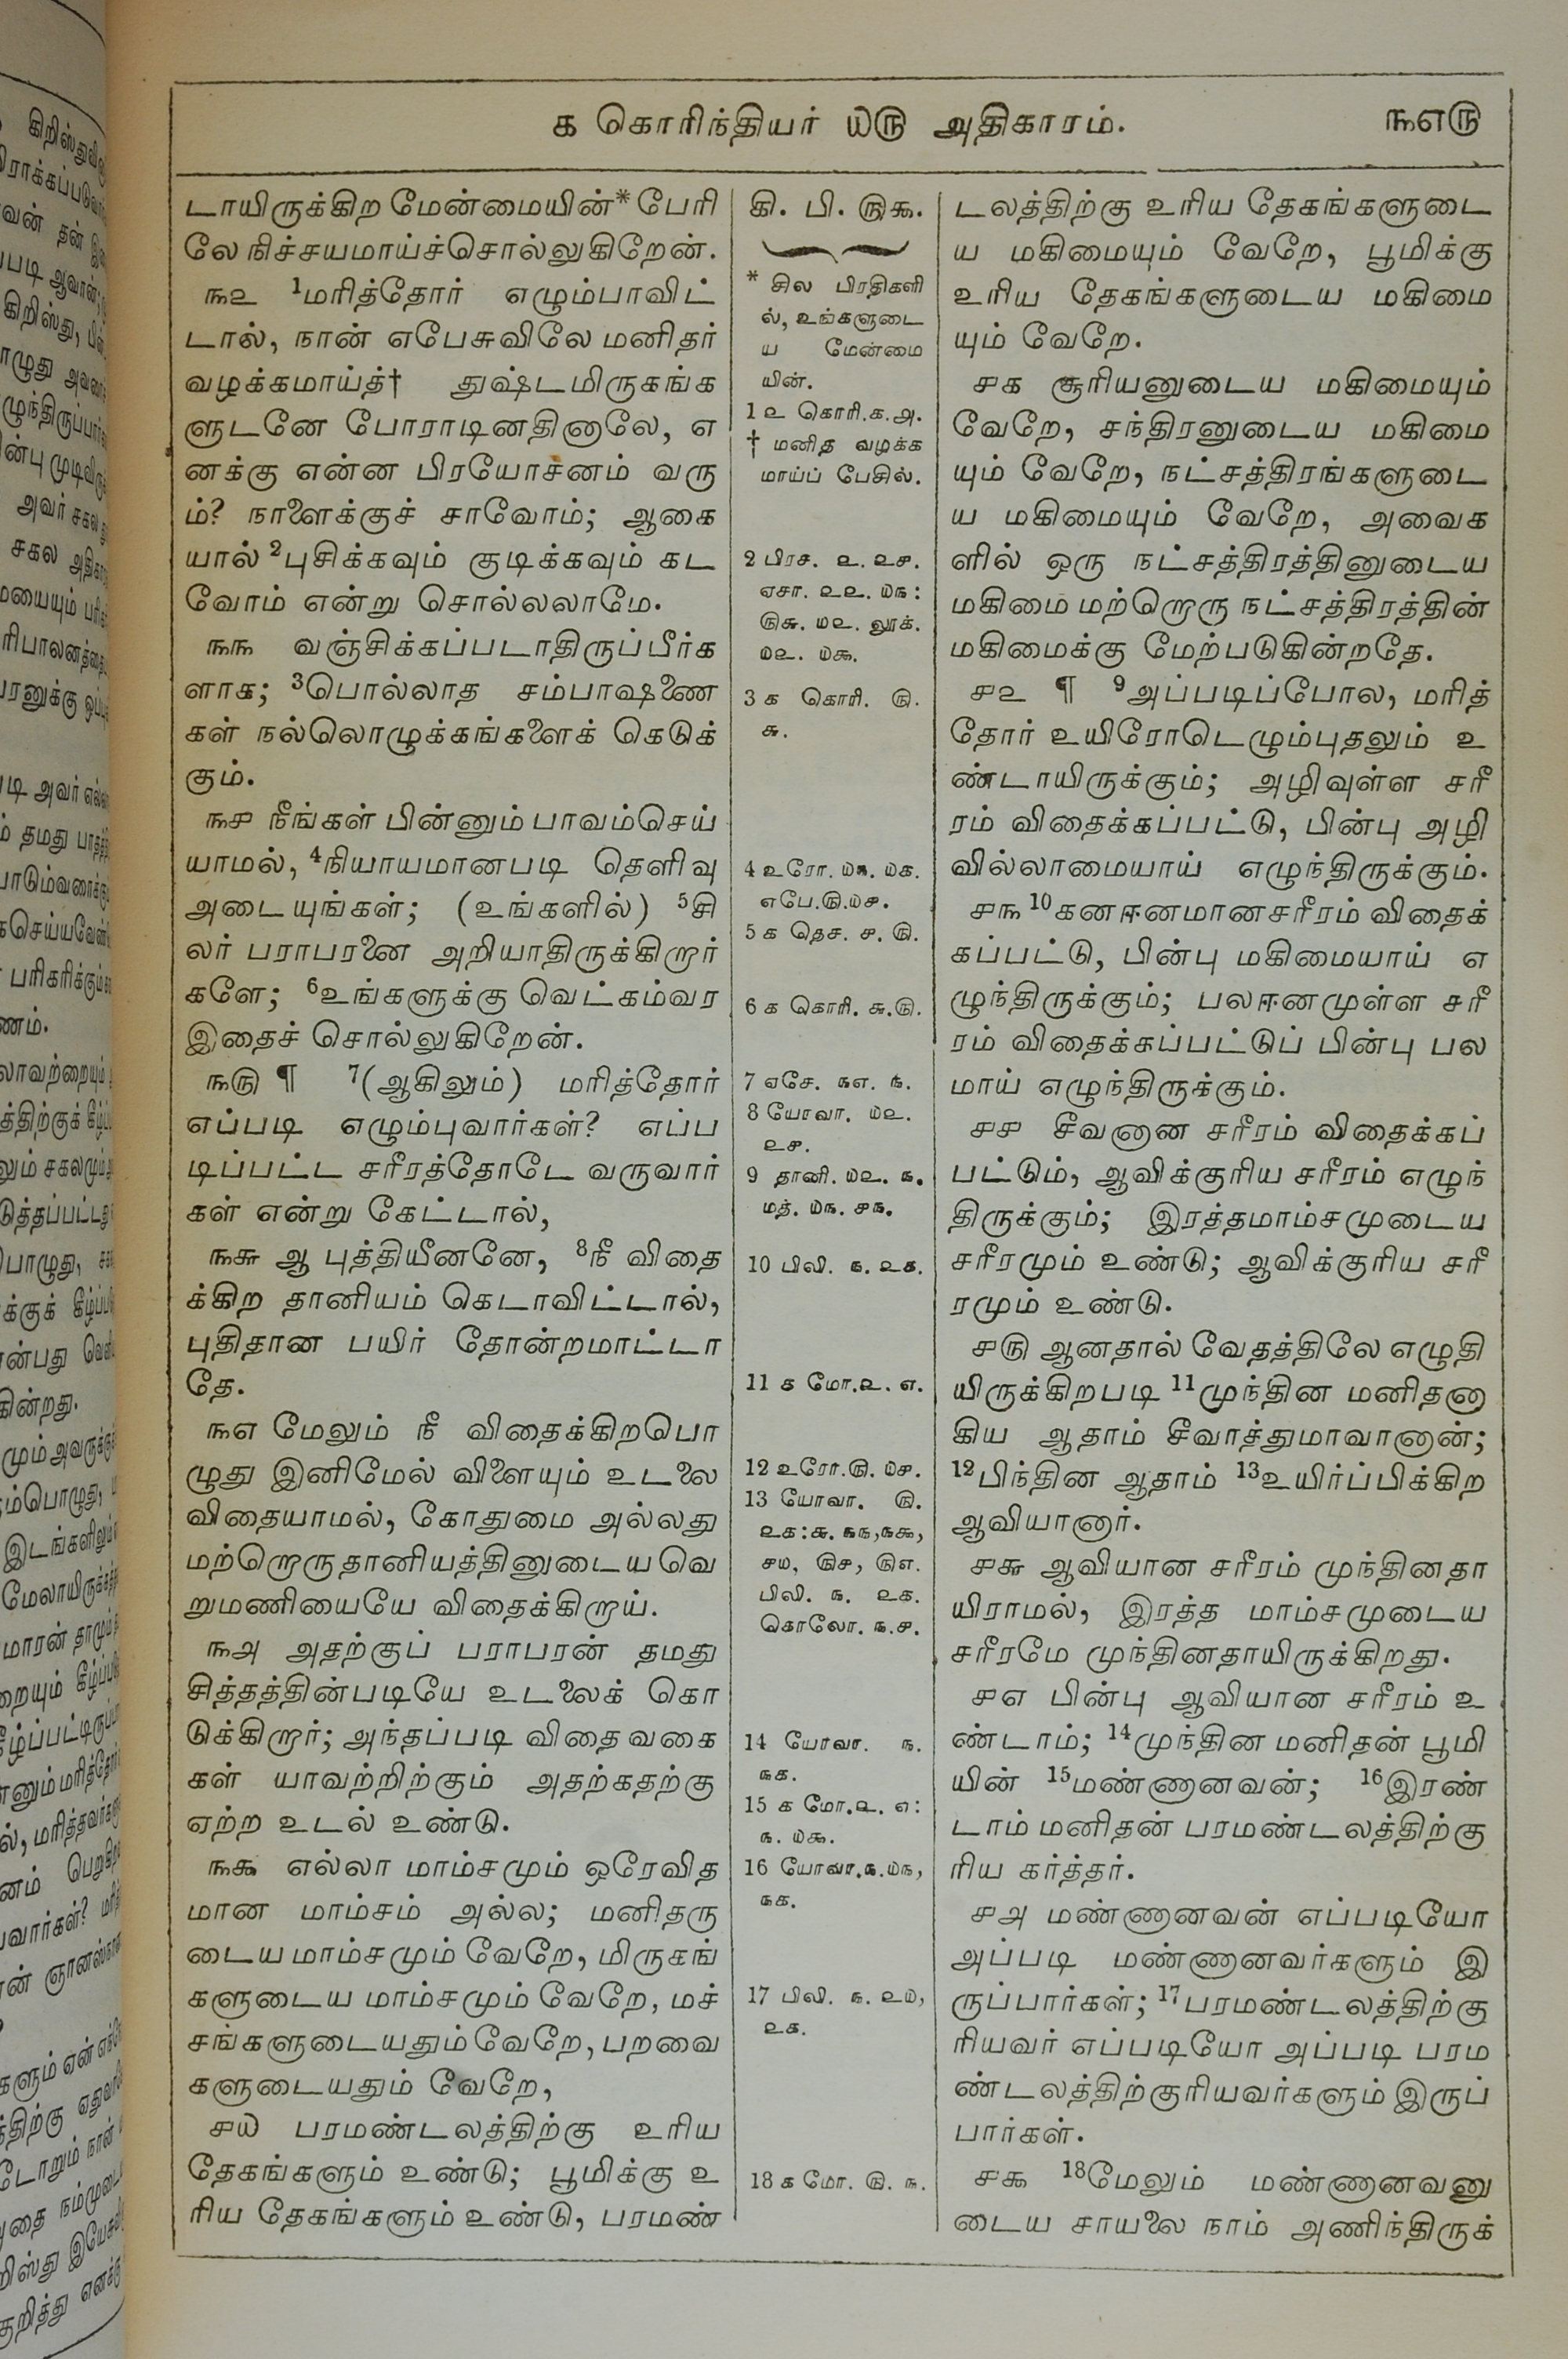 ௧ கொரிந்தியர் ௰௫ அதிகாரம்.
௩௭௫
டாயிருக்கிற மேன்மையின்* பேரி
லே நிச்சயமாய்ச்சொல்லுகிறேன்.
௩௨ 1மரித்தோர் எழும்பாவிட்
டால், நான் எபேசுவிலே மனிதர்
வழக்கமாய்த்† துஷ்டமிருகங்க
ளுடனே போராடினதினாலே, எ
னக்கு என்ன பிரயோசனம் வரு
ம்? நாளைக்குச் சாவோம்; ஆகை
யால் 2புசிக்கவும் குடிக்கவும் கட
வோம் என்று சொல்லலாமே.
௩௩ வஞ்சிக்கப்படாதிருப்பீர்க
ளாக; 3பொல்லாத சம்பாஷணை
கள் நல்லொழுக்கங்களைக் கெடுக்
கும்.
௩௪ நீங்கள் பின்னும் பாவம்செய்
யாமல், 4நியாயமானபடி தெளிவு
அடையுங்கள்; (உங்களில்) 5சி
லர் பராபரனை அறியாதிருக்கிறார்
களே; 6உங்களுக்கு வெட்கம்வர
இதைச் சொல்லுகிறேன்.
௩௫ ¶ 7(ஆகிலும்) மரித்தோர்
எப்படி எழும்புவார்கள்? எப்ப
டிப்பட்ட சரீரத்தோடே வருவார்
கள் என்று கேட்டால்,
௩௬ ஆ புத்தியீனனே, 8நீ விதை
க்கிற தானியம் கெடாவிட்டால்,
புதிதான பயிர் தோன்றமாட்டா
தே.
௩௭ மேலும் நீ விதைக்கிறபொ
ழுது இனிமேல் விளையும் உடலை
விதையாமல், கோதுமை அல்லது
மற்றொரு தானியத்தினுடைய வெ
றுமணியையே விதைக்கிறாய்.
௩௮ அதற்குப் பராபரன் தமது
சித்தத்தின்படியே உடலைக் கொ
டுக்கிறார்; அந்தப்படி விதைவகை
கள் யாவற்றிற்கும் அதற்கதற்கு
ஏற்ற உடல் உண்டு.
௩௯ எல்லா மாம்சமும் ஒரேவித
மான மாம்சம் அல்ல; மனிதரு
டைய மாம்சமும் வேறே, மிருகங்
களுடைய மாம்சமும் வேறே, மச்
சங்களுடையதும் வேறே, பறவை
களுடையதும் வேறே,
௪௰ பரமண்டலத்திற்கு உரிய
தேகங்களும் உண்டு; பூமிக்கு உ
ரிய தேகங்களும் உண்டு, பரமண்
கி. பி. ௫௯.
* சில பிரதிகளி
ல், உங்களுடை
ய மேன்மை
யின்.
1 ௨ கொரி.௧.௮.
† மனித வழக்க
மாய்ப் பேசில்.
2 பிரச. ௨. ௨௪.
ஏசா. ௨௨. ௰௩:
௫௬. ௰௨. லூக்.
௰௨. ௰௯.
3 ௧ கொரி. ௫.
௬.
4 உரோ. ௰௩. ௰௧.
எபே.௫.௰௪.
5 ௧ தெச. ௪. ௫.
6 ௧ கொரி. ௬.௫.
7 ஏசே. ௩௭. ௩.
8 யோவா. ௰௨.
௨௪.
9 தானி. ௰௨. ௩.
மத். ௰௩. ௪௩.
10 பிலி. ௩. ௨௧.
11 ௧ மோ.௨. ௭.
12 உரோ.௫. ௰௪.
13 யோவா. ௫.
௨௧:௬. ௩௩,௩௯,
௪௰, ௫௪, ௫௭.
பிலி. ௩. ௨௧.
கொலோ. ௩.௪.
14 யோவா. ௩.
௩௧.
15 ௧ மோ.௨. ௭:
௩. ௰௯.
16 யோவா.௩.௰௩,
௩௧.
17 பிலி. ௩. ௨௰,
௨௧.
18 ௧ மோ. ௫. ௩.
டலத்திற்கு உரிய தேகங்களுடை
ய மகிமையும் வேறே, பூமிக்கு
உரிய தேகங்களுடைய மகிமை
யும் வேறே.
௪௧ சூரியனுடைய மகிமையும்
வேறே, சந்திரனுடைய மகிமை
யும் வேறே, நட்சத்திரங்களுடை
ய மகிமையும் வேறே, அவைக
ளில் ஒரு நட்சத்திரத்தினுடைய
மகிமை மற்றொரு நட்சத்திரத்தின்
மகிமைக்கு மேற்படுகின்றதே.
௪௨ ¶ 9அப்படிப்போல, மரித்
தோர் உயிரோடெழும்புதலும் உ
ண்டாயிருக்கும்; அழிவுள்ள சரீ
ரம் விதைக்கப்பட்டு, பின்பு அழி
வில்லாமையாய் எழுந்திருக்கும்.
௪௩ 10கனஈனமானசரீரம் விதைக்
கப்பட்டு, பின்பு மகிமையாய் எ
ழுந்திருக்கும்; பலஈனமுள்ள சரீ
ரம் விதைக்கப்பட்டுப் பின்பு பல
மாய் எழுந்திருக்கும்.
௪௪ சீவனான சரீரம் விதைக்கப்
பட்டும், ஆவிக்குரிய சரீரம் எழுந்
திருக்கும்; இரத்தமாம்சமுடைய
சரீரமும் உண்டு; ஆவிக்குரிய சரீ
ரமும் உண்டு.
௪௫ ஆனதால் வேதத்திலே எழுதி
யிருக்கிறபடி 11முந்தின மனிதனா
கிய ஆதாம் சீவாத்துமாவானான்;
12பிந்தின ஆதாம் 13உயிர்ப்பிக்கிற
ஆவியானார்.
௪௬ ஆவியான சரீரம் முந்தினதா
யிராமல், இரத்த மாம்சமுடைய
சரீரமே முந்தினதாயிருக்கிறது.
௪௭ பின்பு ஆவியான சரீரம் உ
ண்டாம்; 14முந்தின மனிதன் பூமி
யின் 15மண்ணானவன்; 16இரண்
டாம் மனிதன் பரமண்டலத்திற்கு
ரிய கர்த்தர்.
௪௮ மண்ணானவன் எப்படியோ
அப்படி மண்ணானவர்களும் இ
ருப்பார்கள்; 17பரமண்டலத்திற்கு
ரியவர் எப்படியோ அப்படி பரம
ண்டலத்திற்குரியவர்களும் இருப்
பார்கள்.
௪௯ 18மேலும் மண்ணானவனு
டைய சாயலை நாம் அணிந்திருக்